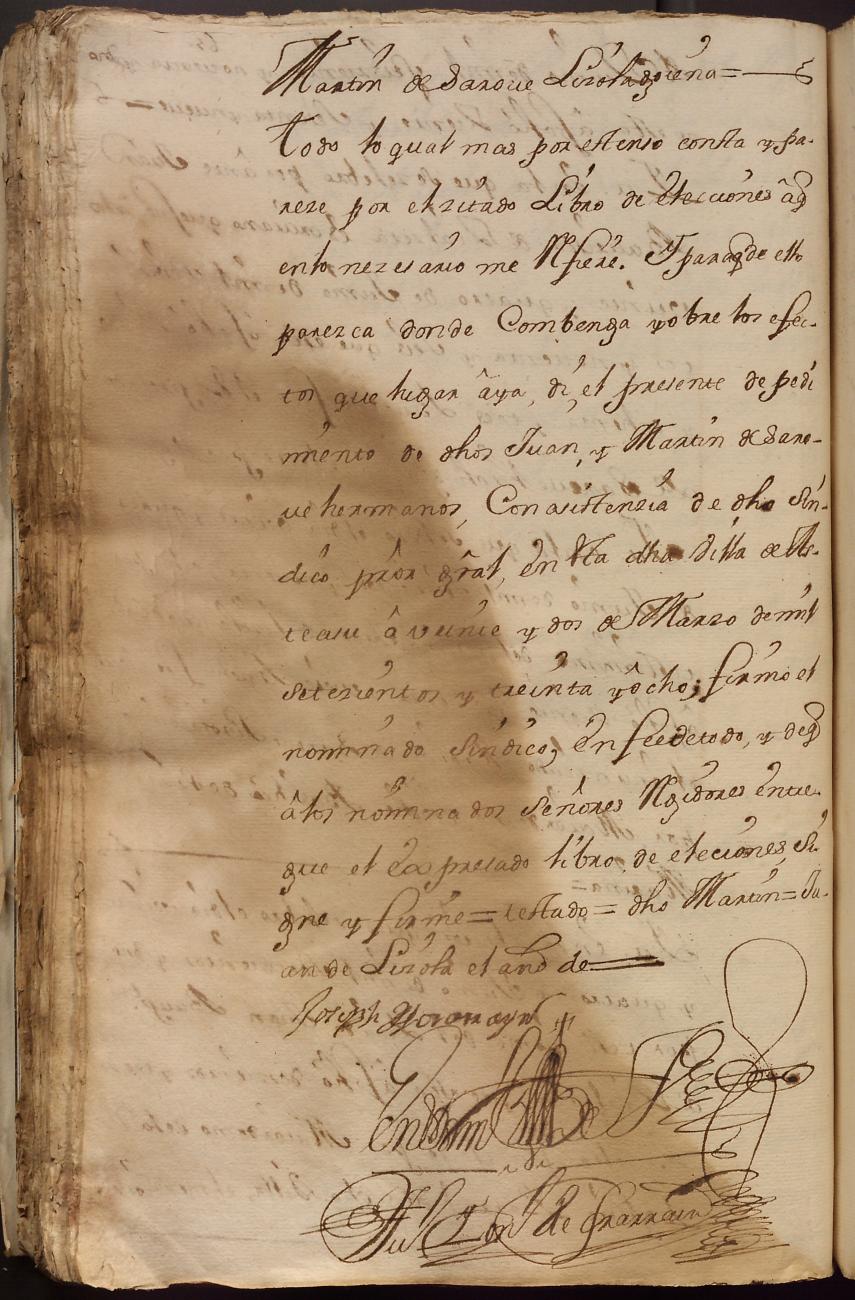 Martin de Sarove Lizola
Todo lo qual mas por estenso consta y pa-
reze por el zitado Libro de elecciones a q
en lo nezesario me Rfiero. Y para q de ello
parezca donde Combenga y obre los efec-
tos que lugar aya, di el presente de pedi
miento de dhos Juan, y Martin de Saro-
ve hermanos, Con asistenzia de dho Sin-
dico pror gral, en dha Villa de
a veinte y dos de Marzo de mil
setezientos y treinta y ocho, firmo el
nominado Sindico, en fee de todo, y de q
a los nominados Señores Rgidores entre-
gue el expresado libro de elecciones, Si-
gne y firme = testado = dho Martin = Ju-
an de Lizola el año de
Joseph
En testim de